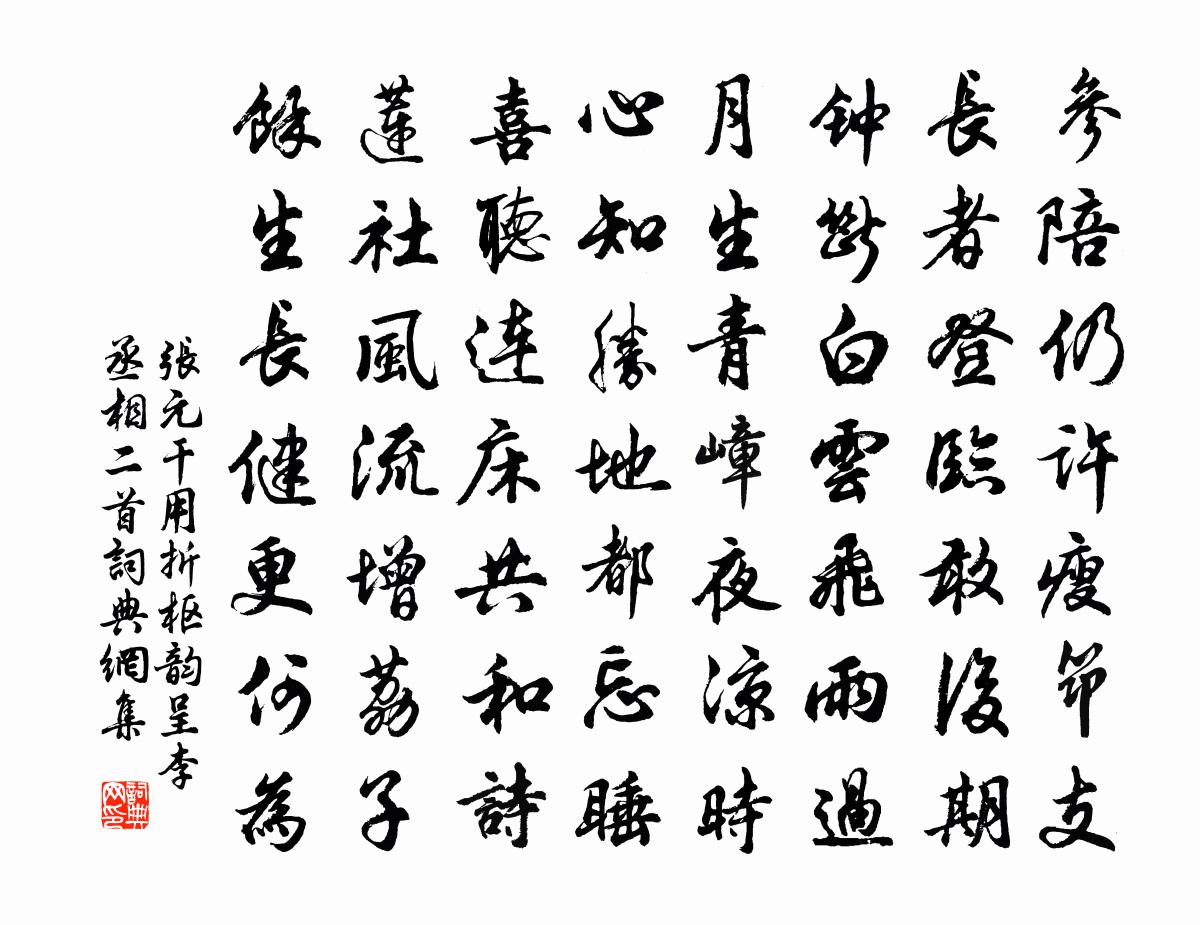 參陪仍許瘦筇支
長者登臨敢後期
钟斷白雲飛雨過
月生青嶂夜涼時
心知勝地都忘睡
喜聽連床共和詩
蓮社風流增荔子
餘生長健更何為
張元干用折枢韵呈李
丞相二首詞典網集
詞典
网印